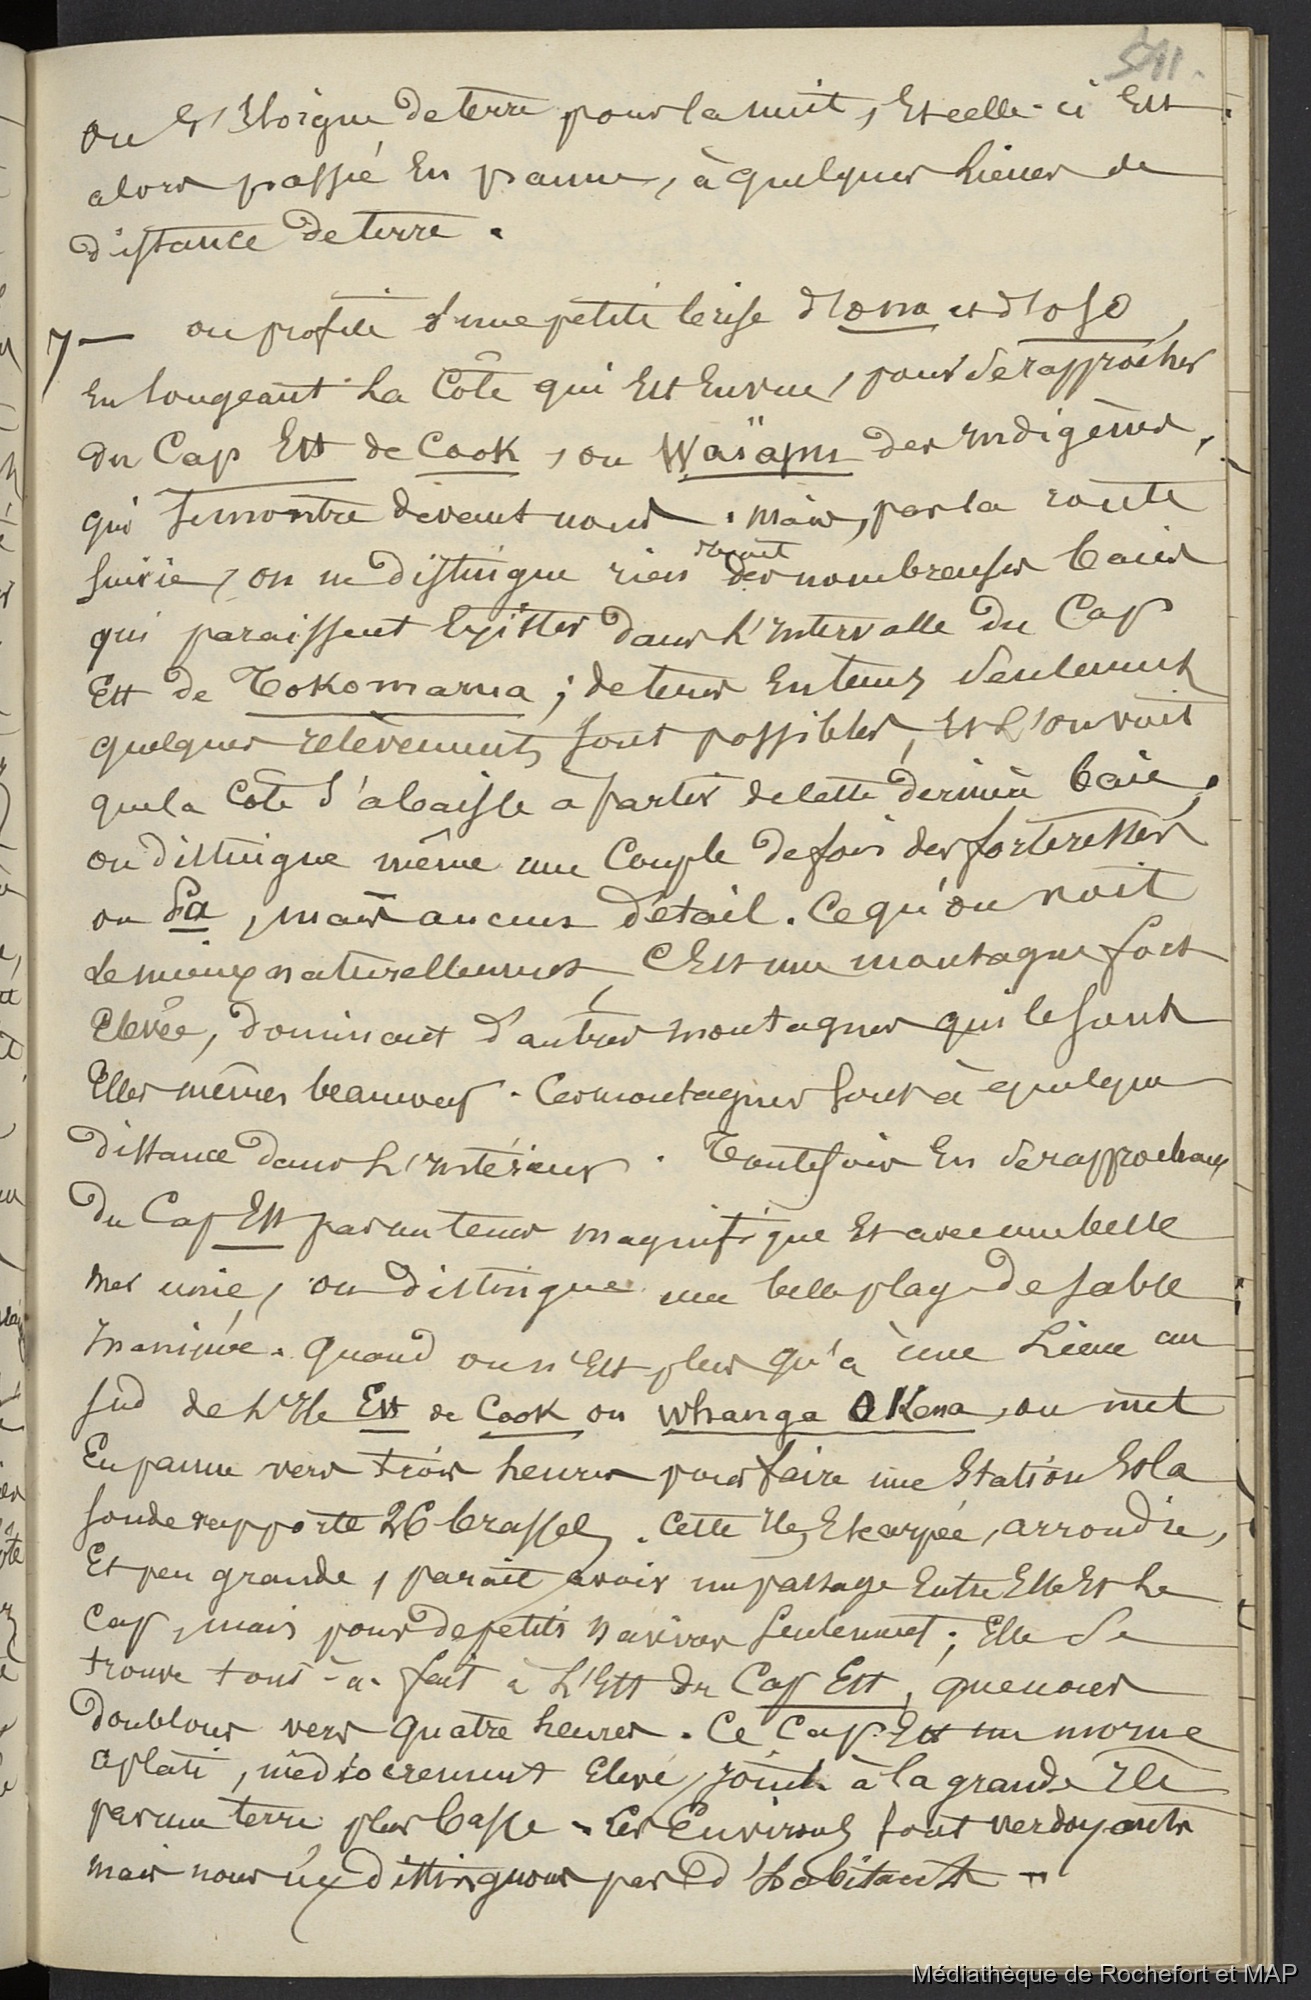 511.
on s'Eloigne de terre pour la nuit, Et celle-ci Est
alors passée En panne, à quelques Lieues de
distance de terre.
7 — on profite d'une petite brise d'ono et d'oso,
En Longeant La Côte qui Est En vue, pour se rapprocher
du Cap Est de Cook, ou Waïapu des Indigènes,
qui se montre devant nous. Mais, par la route
suivie, on ne distingue rien devant des nombreuses baies
qui paraissent Exister dans L'Intervalle du Cap
Est de Tokomarua ; de tems En tems seulement
quelques relèvements sont possibles, Et L'on voit
que la Côte s'abaisse à partir de cette dernière baie,
on distingue même une Couple de fois des forteresses
ou Pa, mais aucun détail. Ce qu'on voit
Le mieux naturellement, C'Est une montagne fort
Elevée, dominant d'autres montagnes qui le sont
Elles mêmes beaucoup. Ces montagnes sont à quelque
distance dans L'Intérieur. Toutefois En se rapprochant
du Cap Est par un tems magnifique Et avec une belle
mer unie, on distingue une belle plage de sable
Quand on n'Est plus qu'à une Lieue au
sud de L'Ile Est de Cook ou Whanga O Kena, on met
En panne vers trois heures pour faire une Station Et la
sonde rapporte 26 brasses. Cette Ile, Escarpée, arrondie,
Et peu grande, parait avoir un passage Entre Elle Et Le
Cap, mais pour de petits navires seulement ; Elle se
trouve tout-à-fait à L'Est du Cap Est, que nous
doublons vers quatre heures. Ce Cap Est un morne
aplati, médiocrement Elevé, joint à la grande Ile
par une terre plus basse. Les Environs sont verdoyants
mais nous n'y distinguons pas d'habitants —
Médiathèque de Rochefort et MAP